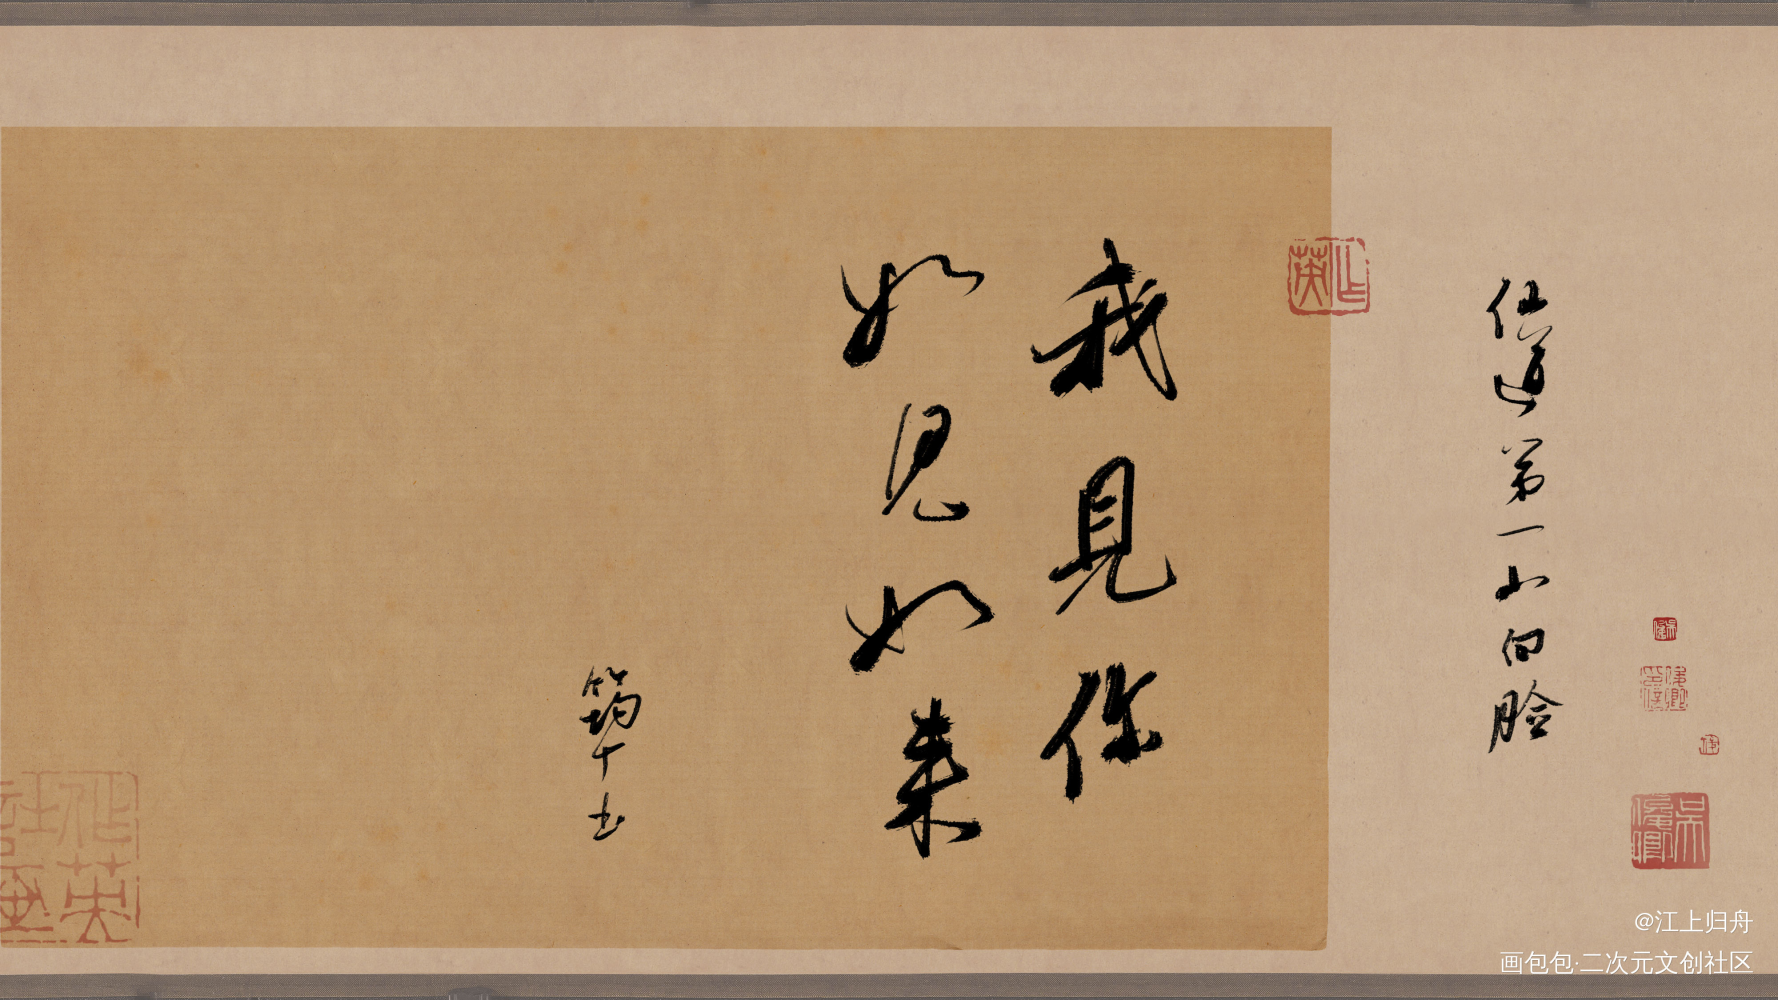 仙道第一小白脸
我見你
如见如来
筠十书
@江上归舟
画包包·二次元文创社区